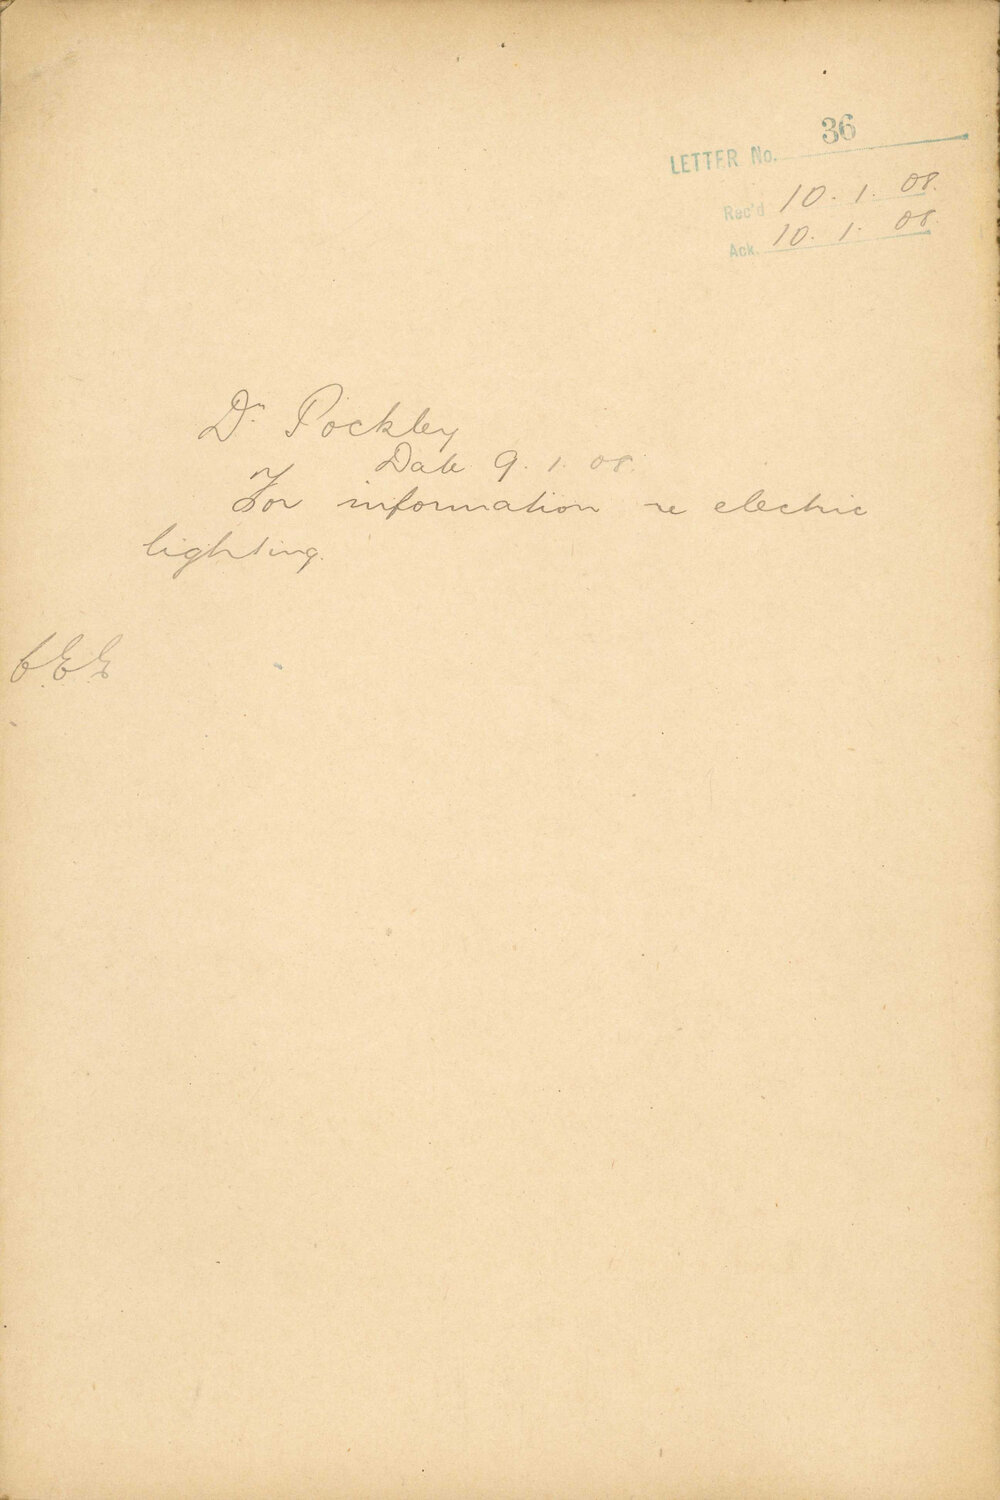 LETTER No. 36
Rec'd 10. 1. 08.
Ack. 10. 1. 08.
Dr. Pockley
Date 9. 1. 08.
For information re electric
lighting.